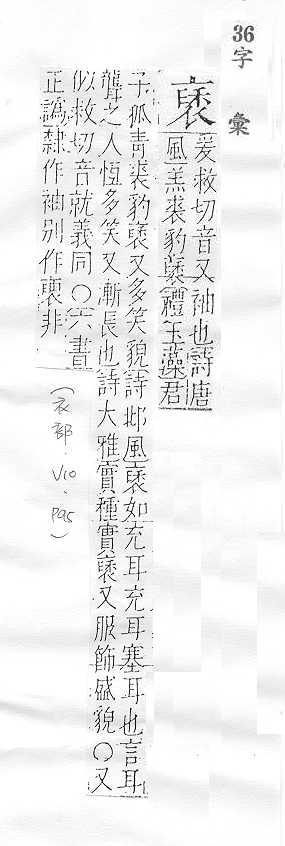 36
字彙
褎
爰救切音又袖也詩唐
風羔裘豹褎禮玉藻君
子狐青裘豹褎又多笑貌詩邶風褎如充耳充耳塞耳也言耳
聾之人恆多笑又漸長也詩大雅實種實褎又服飾盛貌○又
似救切音就義同○六書
正譌隸作袖別作褏非
(衣部．V10．P95)